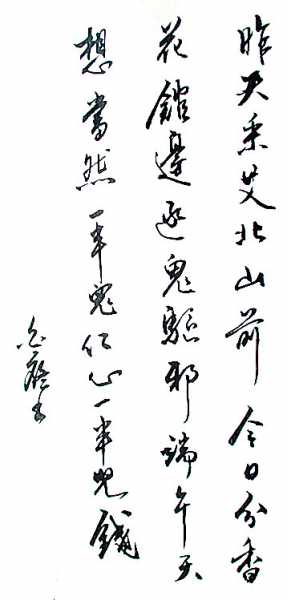 昨天采艾北山前今日分香
花館邊逐鬼驅邪端午天
想當然一半兒仁心一半兒錢